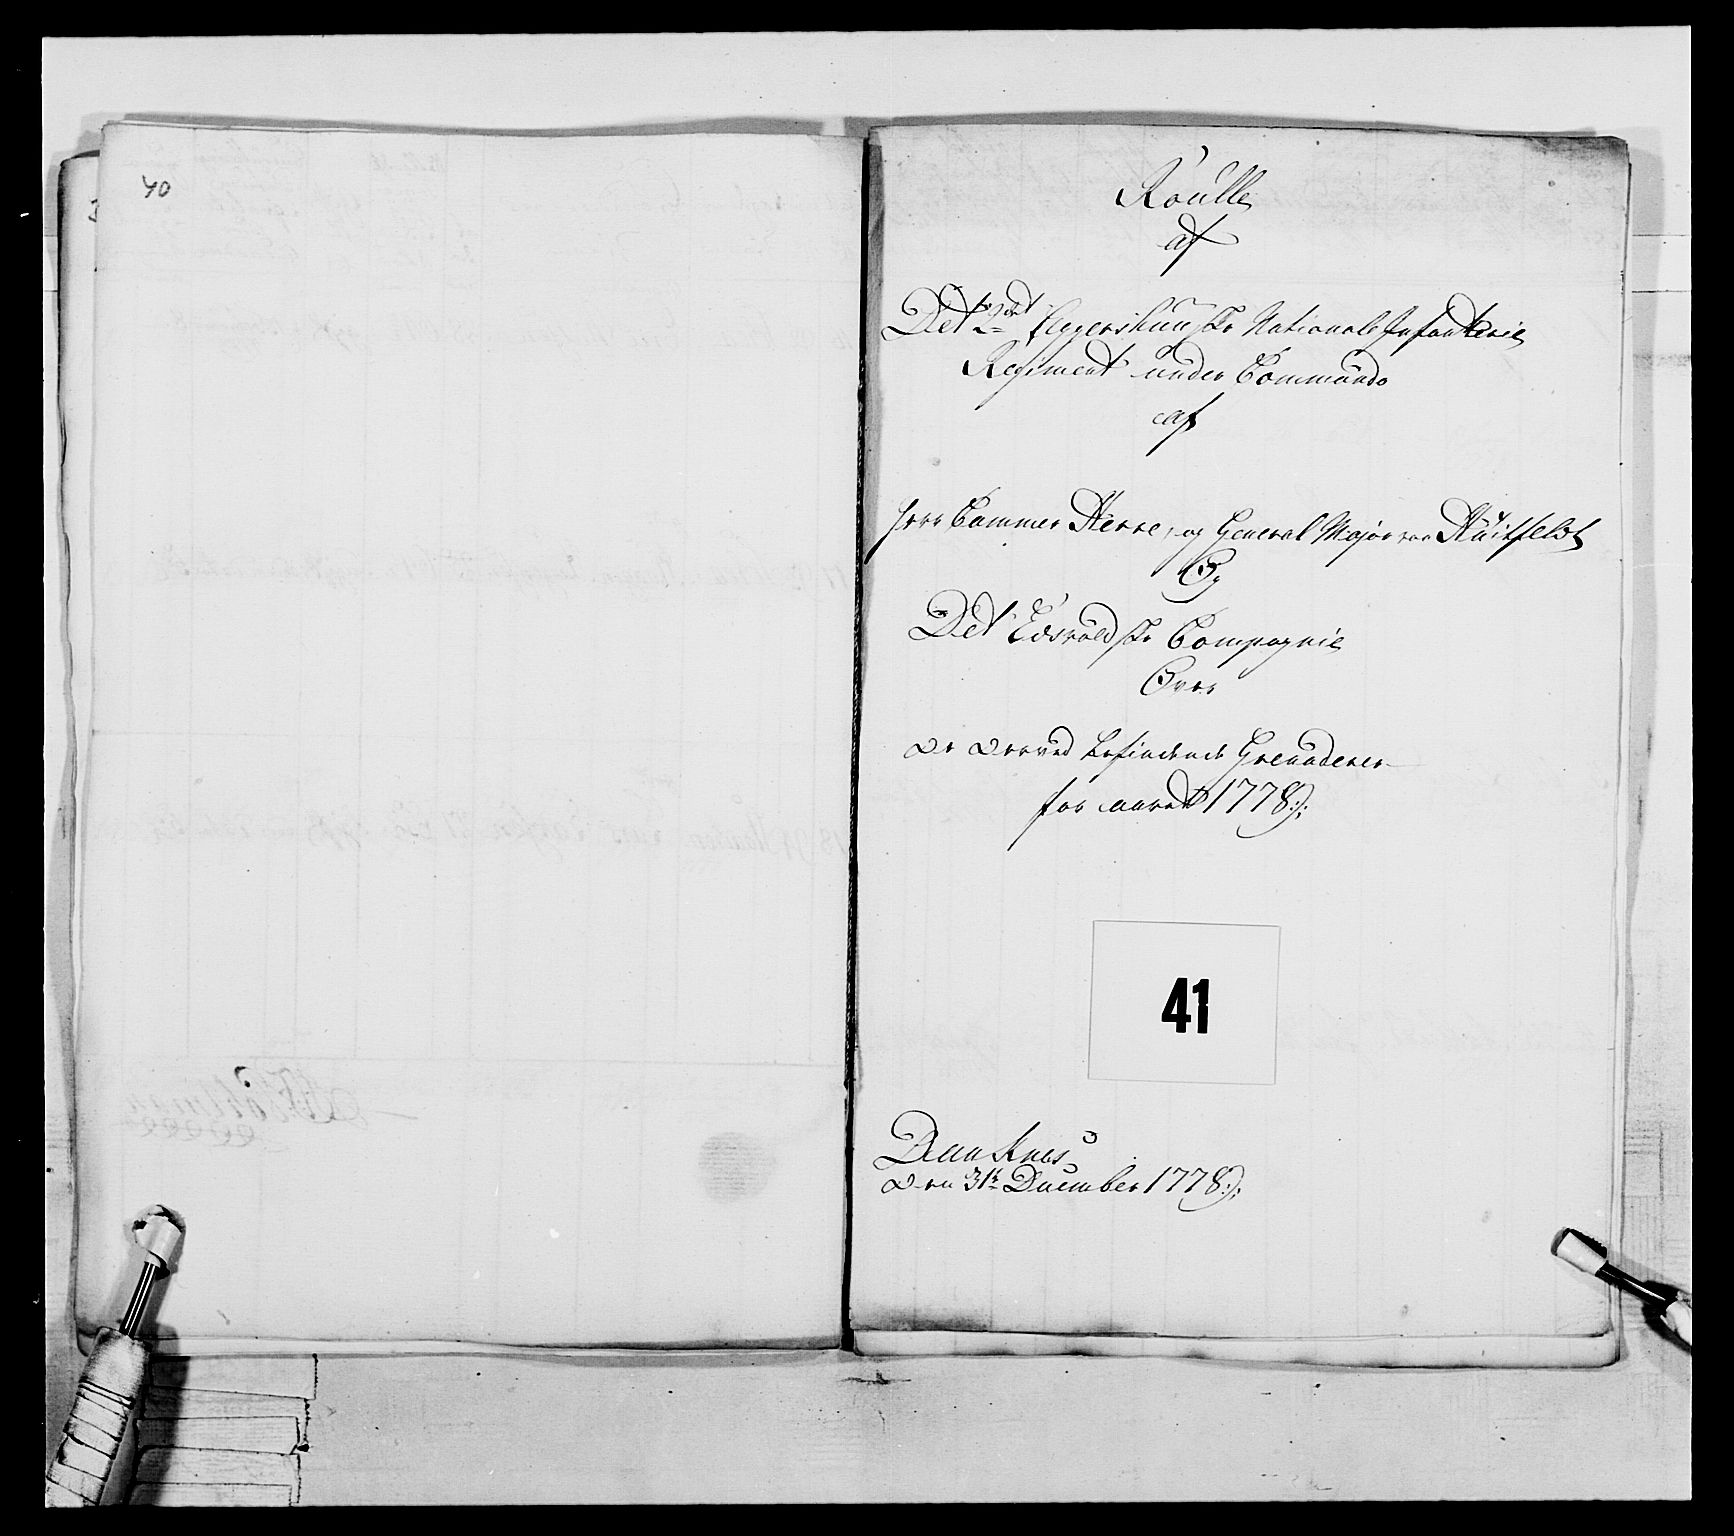 40
Roulle
af
Det 2det Aggershuusske Nationale Infanterie
Regiment under Commando
af
Herr Cammer Herre, og General Major von Huitfeldt
Og
Det Edsvoldske Compagnie
Over
De derved befindende Grenaderer
for aaret 1778
41
Den 31te December 1778